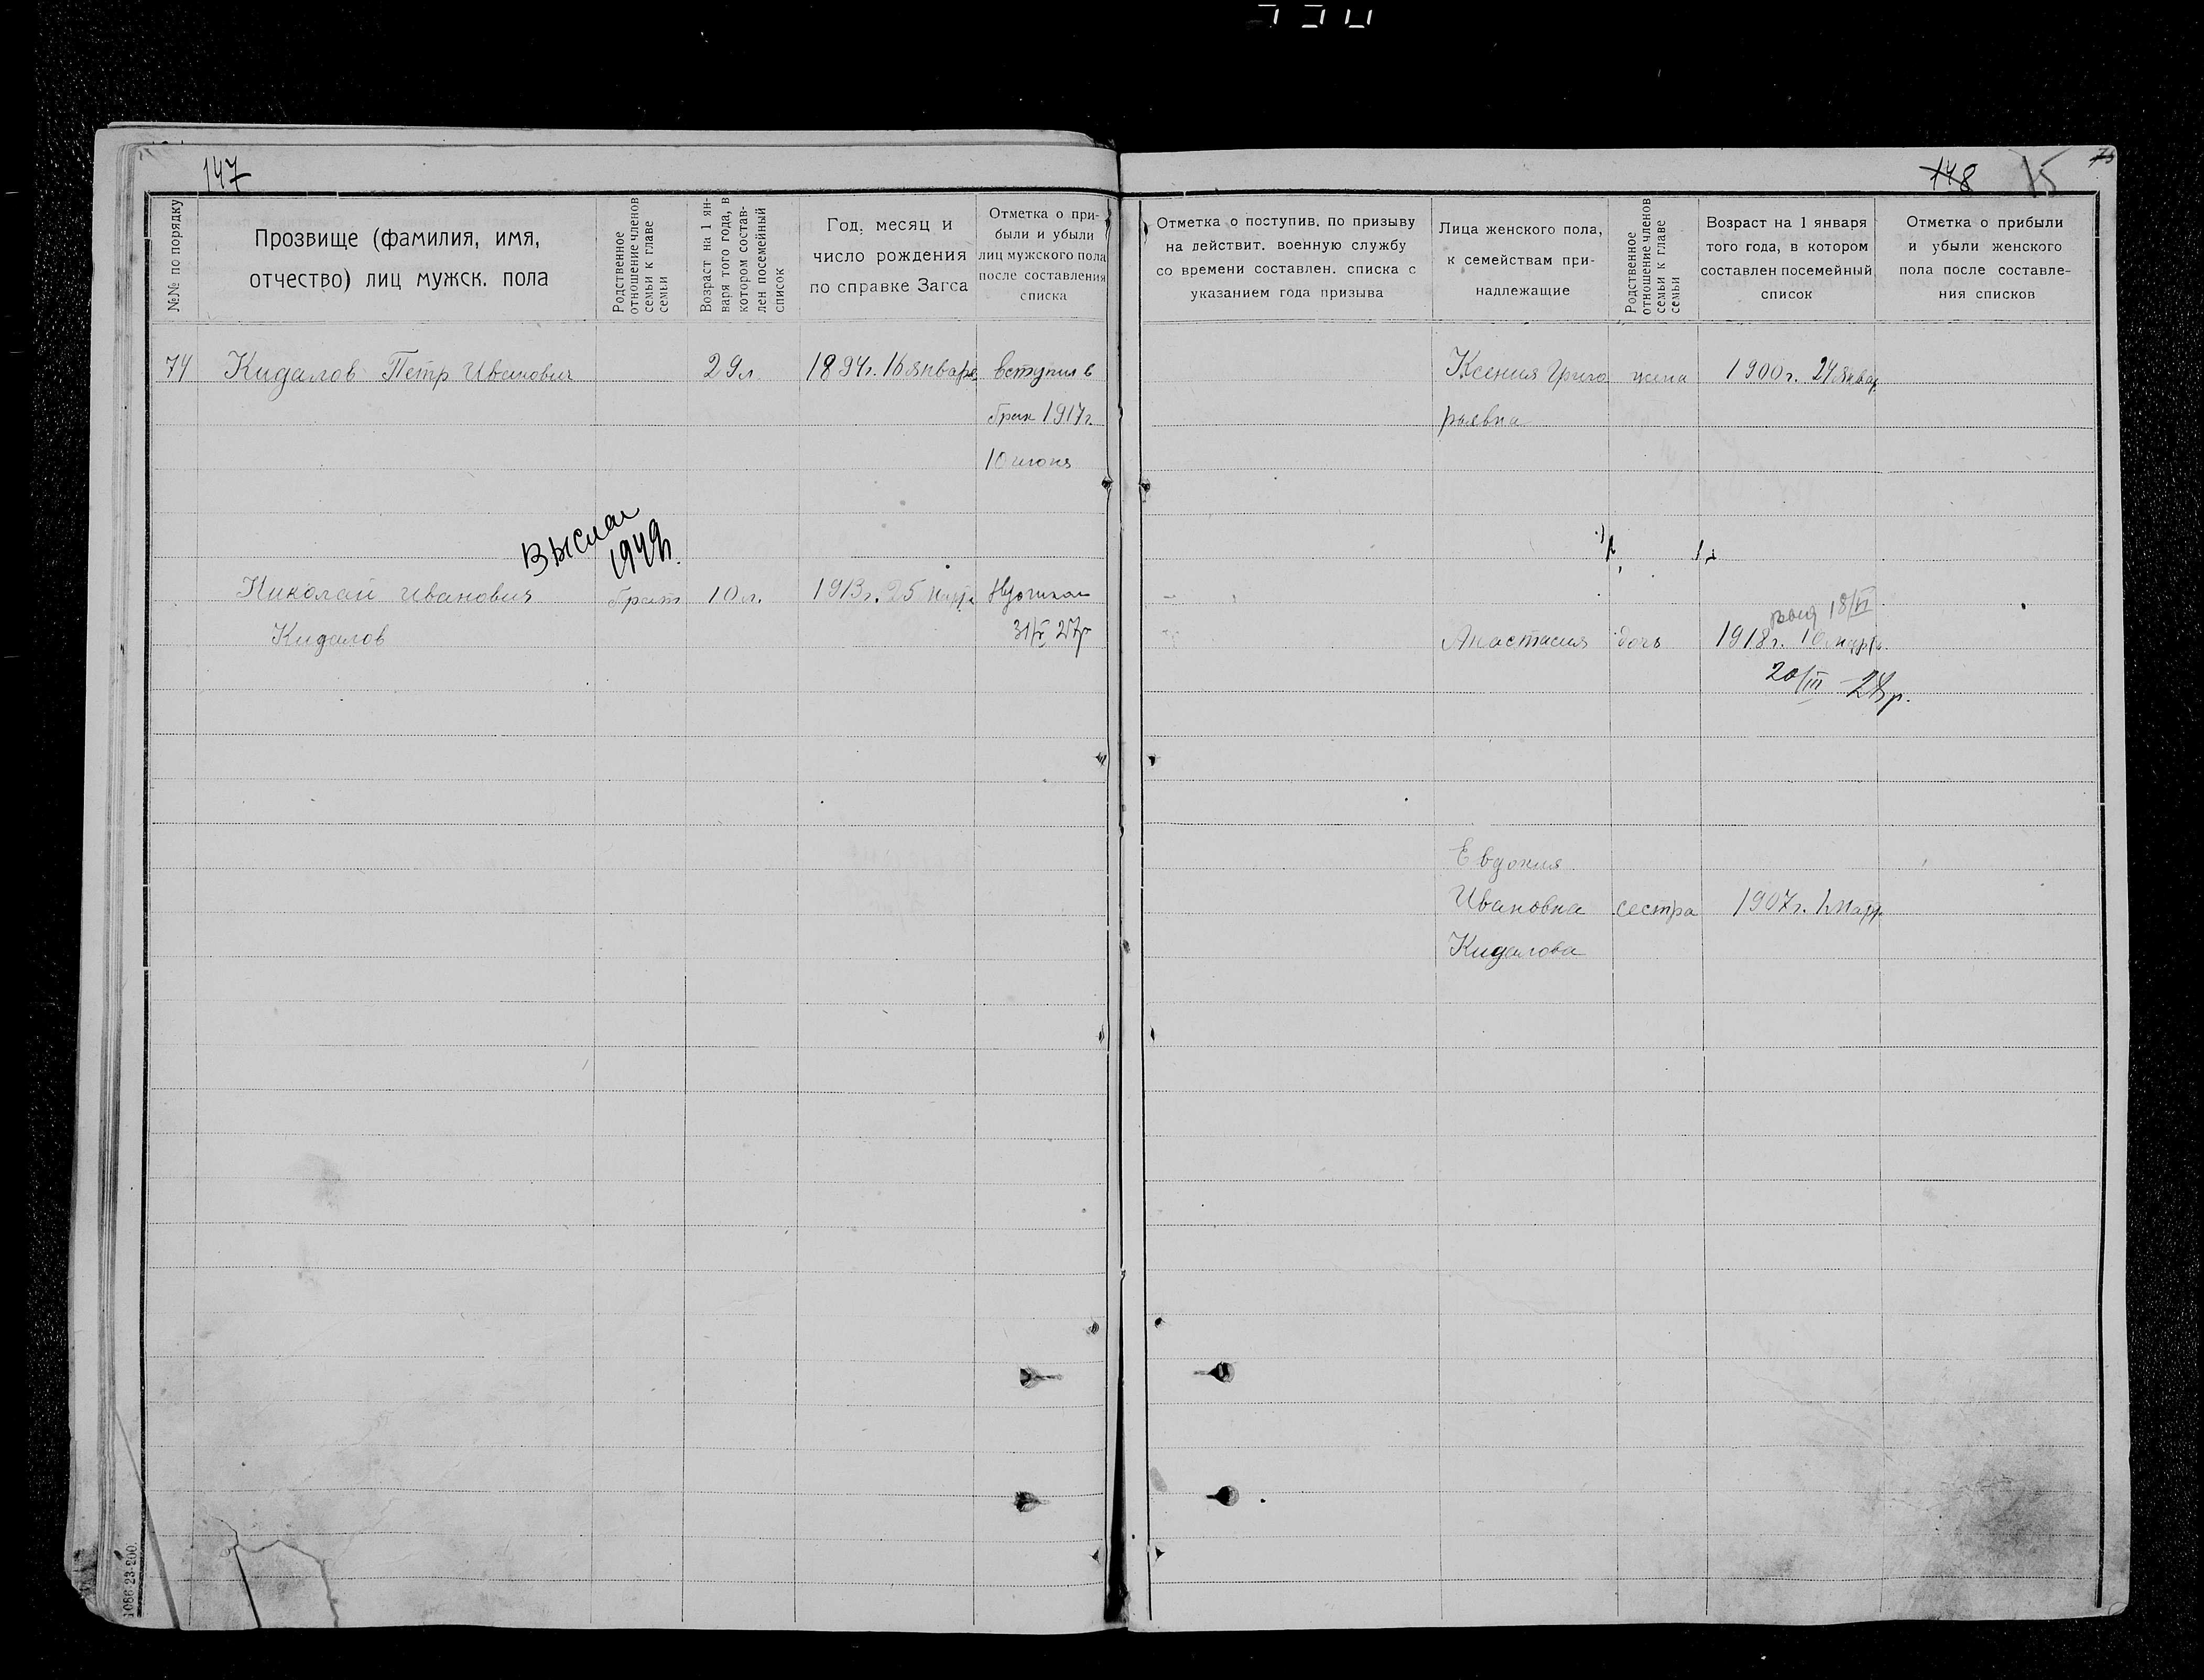 147
№№ по порядку
Прозвище (фамилия, имя,
отчество) лиц мужск. пола
Родственное
отношение членов
семьи к главе
семьи
Возраст на 1 ян-
варя того года, в
котором состав-
лен посемейный
список
Год, месяц и
число рождения
по справке Загса
Отметка о при-
были и убыли
лиц мужского пола
после составления
списка
74 Кидалов Петр Иванович 29 л 1894 г. 16 января вступил в
брак 1917 г.
10 июня
Выслан
1949г.
Николай Иванович брат 10 л. 1913 г. 25 марта
Кидалов 31/V 27г
1066-23-200.
148 75
75
Отметка о поступив. по призыву
на действит. военную службу
со времени составлен. списка с
указанием года призыва
Лица женского пола,
к семействам при-
надлежащие
Родственное
отношение членов
семьи к главе
семьи
Возраст на 1 января
того года, в котором
составлен посемейный
список
Отметка о прибыли
и убыли женского
пола после составле-
ния списков
Ксения Григо жена 1900 г. 24 январ
рьевна
18/VI
Анастасия дочь 1918 г. 10 марта
20/III - 28г.
Евдокия
Ивановна сестра 1907 г. 1 мар
Кидалова